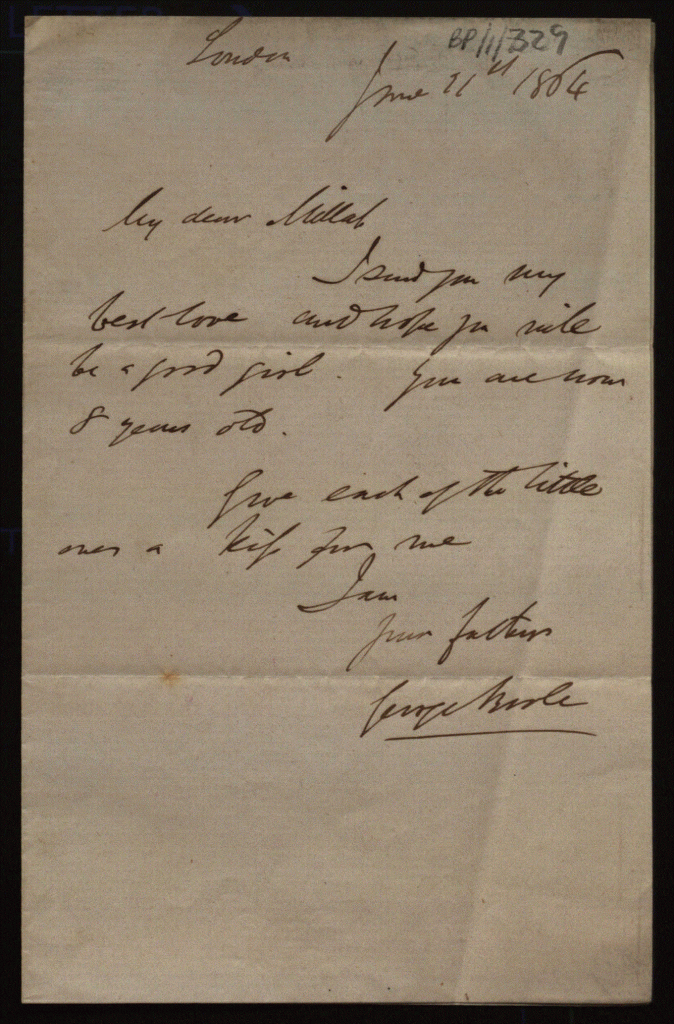 BP/1/329
London
June 11th 1864
My dear Millah
I send you my
best love and hope you will
be a good girl. You are now
8 years old.
Give each of the little
ones a kiss for me
I am
your father
George Boole